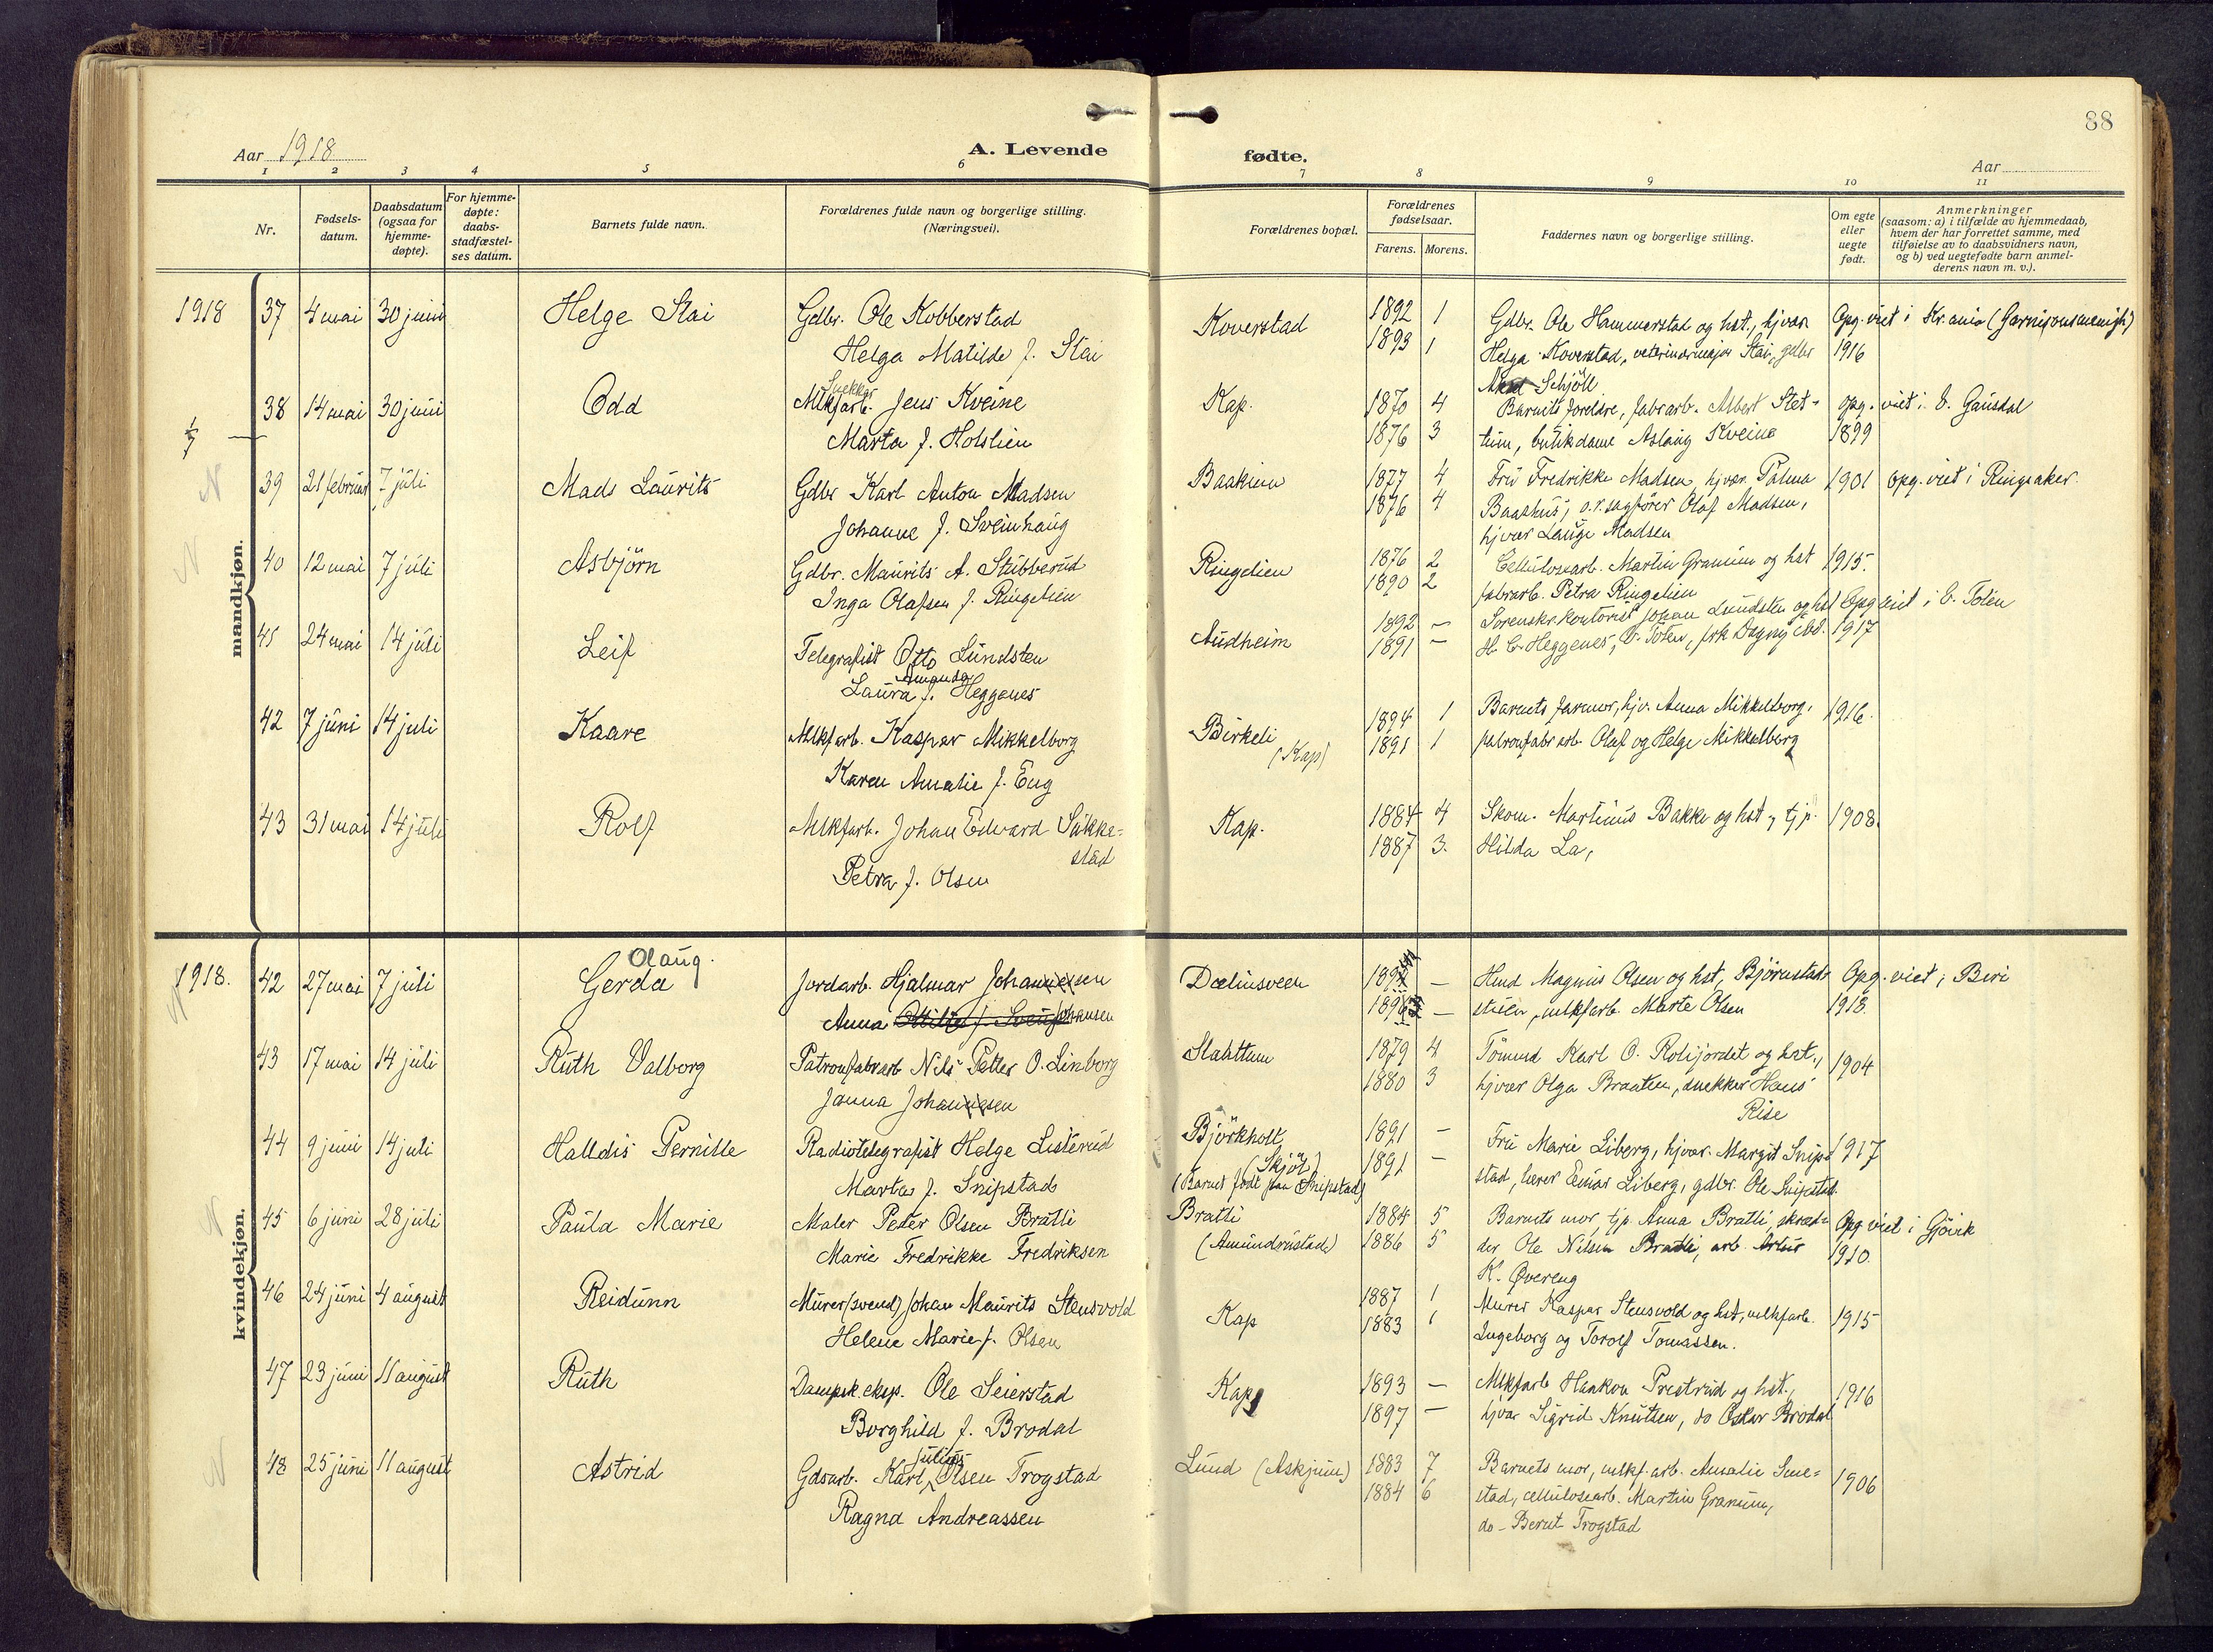 88
Aar 1918
A. Levende
fødte.
Aar
1 2 3 4 5 6 7 8 9 10 11
Nr.
Fødsels-
datum.
Daabsdatum
(ogsaa for
hjemme-
døpte).
For hjemme-
døpte:
daabs-
stadfæstel-
ses datum.
Barnets fulde navn.
Forældrenes fulde navn og borgerlige stilling.
(Næringsvei).
Forældrenes bopæl.
Forældrenes
fødselsaar.
Farens. Morens.
Faddernes navn og borgerlige stilling.
Om egte
eller
uegte
født.
Anmerkninger
(saasom: a) i tilfælde av hjemmedaab,
hvem der har forrettet samme, med
tilføielse av to daabsvidners navn,
og b) ved uegtefødte barn anmel-
derens navn m. v.).
mandkjøn.
1918 37 4 mai 30 juni Helge Stai Gdbr. Ole Kobberstad Koverstad 1892 1 Gdbr. Ole Hammerstad og hst., hjvær Opg. viet i Kr.ania (Garnisonsmenigh)
Helga Matilde f. Stai 1893 1 Helga Koverstad, veterinærmajor Stai, gdbr 1916
Schjöll
Snekker
38 14 mai 30 juni Odd Mlkfarb. Jens Kveine Kap. 1870 4 Barnets foreldre, fabrarb. Albert Stet- opg. viet i Ö. Gausdal
1/7
Marta f. Holslien 1876 3 tum, butikdame Aslaug Kveine 1899
N 39 21 februar 7 juli Mads Laurits Gdbr Karl Anton Madsen Baakinn 1877 4 Fru Fredrikke Madsen, hjvær. Palma 1901 opg. viet i Ringsaker.
Johanne f. Sveinhaug 1876 4 Baashus, o.r.sagförer Olaf Madsen,
hjvær Lauge Madsen
N 40 12 mai 7 juli Asbjörn Gdbr. Maurits A. Stubberud Ringelien 1876 2 Cellulosearb. Martin Granum og hst 1915.
Inga Olafsen f. Ringelien 1890 2 fabrarb. Petra Ringelien
45 24 mai 14 juli Leif Telegrafist Otto Lundsten Audheim 1892 – Sorenskr.kontorist Johan Lundsten og hst Opg viet i Ö. Toten
Amanda
Laura f. Heggenes 1891 – H. C. Heggenes, Ö. Toten, frk Dagny ibd. 1917
42 7 juni 14 juli Kaare Mlkfarb. Kaspar Mikkelborg Birkeli 1894 1 Barnets farmor, hjv. Anna Mikkelborg, 1916.
Karen Amalie f. Eng (Kap) 1891 1 patronfabrarb. Olaf og Helge Mikkelborg
43 31 mai 14 juli Rolf Mlkfarb. Johan Edward Sukke- Kap. 1884 4 Skom. Martinus Bakke og hst, tjp. 1908.
stad 1887 3. Hilda La,
Petra f. Olsen
kvindekjøn.
Olaug.
1918. 42 27 mai 7 juli Gerda Jordarb. Hjalmar Johannesen Dælinsveen – Hmd Magnus Olsen og hst, Björnstad- Opg. viet i Biri
Anna Johansen – stuen, mlkfarb. Marte Olsen 1918.
43 17 mai 14 juli Ruth Valborg Patronfabrarb Nils Petter O. Linborg Slaattum 1879 4 Tömmd Karl O. Rolijordet og hst., 1904
Janna Johannesen 1880 3 hjvær Olga Braaten, snekker Hans
Rise
44 9 juni 14 juli Halldis Pernille Radiotelegrafist Helge Listerud Björkholt 1891 – Fru Marie Liberg, hjvær. Margit Snip- 1917
Marta f. Snipstad (Skjöl) 1891 – stad, lærer Einar Liberg, gdbr. Ole Snipstad.
(Barnet født paa Snipstad)
45 6 juni 28 juli Paula Marie Maler Peter Olsen Bratli Bratli 1884 5 Barnets mor, tjp Anna Bratli, skræd- Opg viet i Gjövik
Marie Fredrikke Fredriksen (Amundrustad) 1886 5 der Ole Nilsen Bratli, arb. Artur 1910.
K. Øvereng
46 24 juni 4 august Reidunn Murer(svend) Johan Maurits Stensvold Kap 1887 1 Murer Kaspar Stensvold og hst, mlkfarb. 1915
Helene Marie f. Olsen 1883 1 Ingeborg og Torolf Tomassen.
47 23 juni 11 august Ruth Dampsk.eksp. Ole Seierstad Kap 1893 – Mlkfarb Haakon Prestrud og hst., 1916
Borghild f. Brodal 1897 – hjvær Sigrid Knutsen, do Oskar Brodal
Julius
N 48 25 juni 11 august Astrid Gdsarb. Karl Olsen Trogstad Lund (Askjum) 1883 7 Barnets mor, mlkf.arb. Amalie Sme- 1906
Ragna Andreassen 1884 6 stad, cellulosearb. Martin Granum,
do – Bernt Trogstad